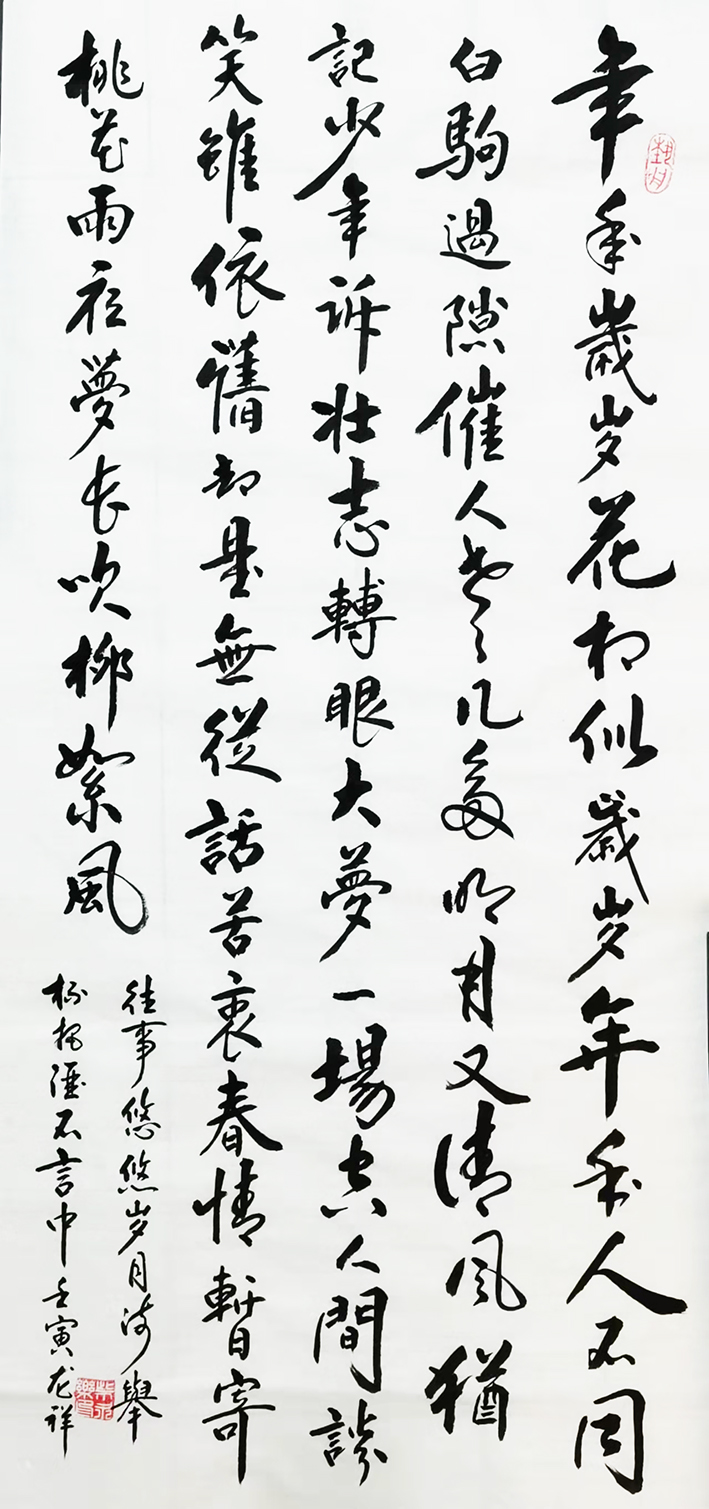 年年歲岁花相似歲岁年年人不同
白駒過隙催人老几多明月又清風猶
記少年訴壮志轉眼大夢一場空人間談
笑雖依舊却是無從話苦衷春情暫寄
桃花雨夜夢長吹柳絮風
往事悠悠岁月舉
杯把酒不言中壬寅龙祥